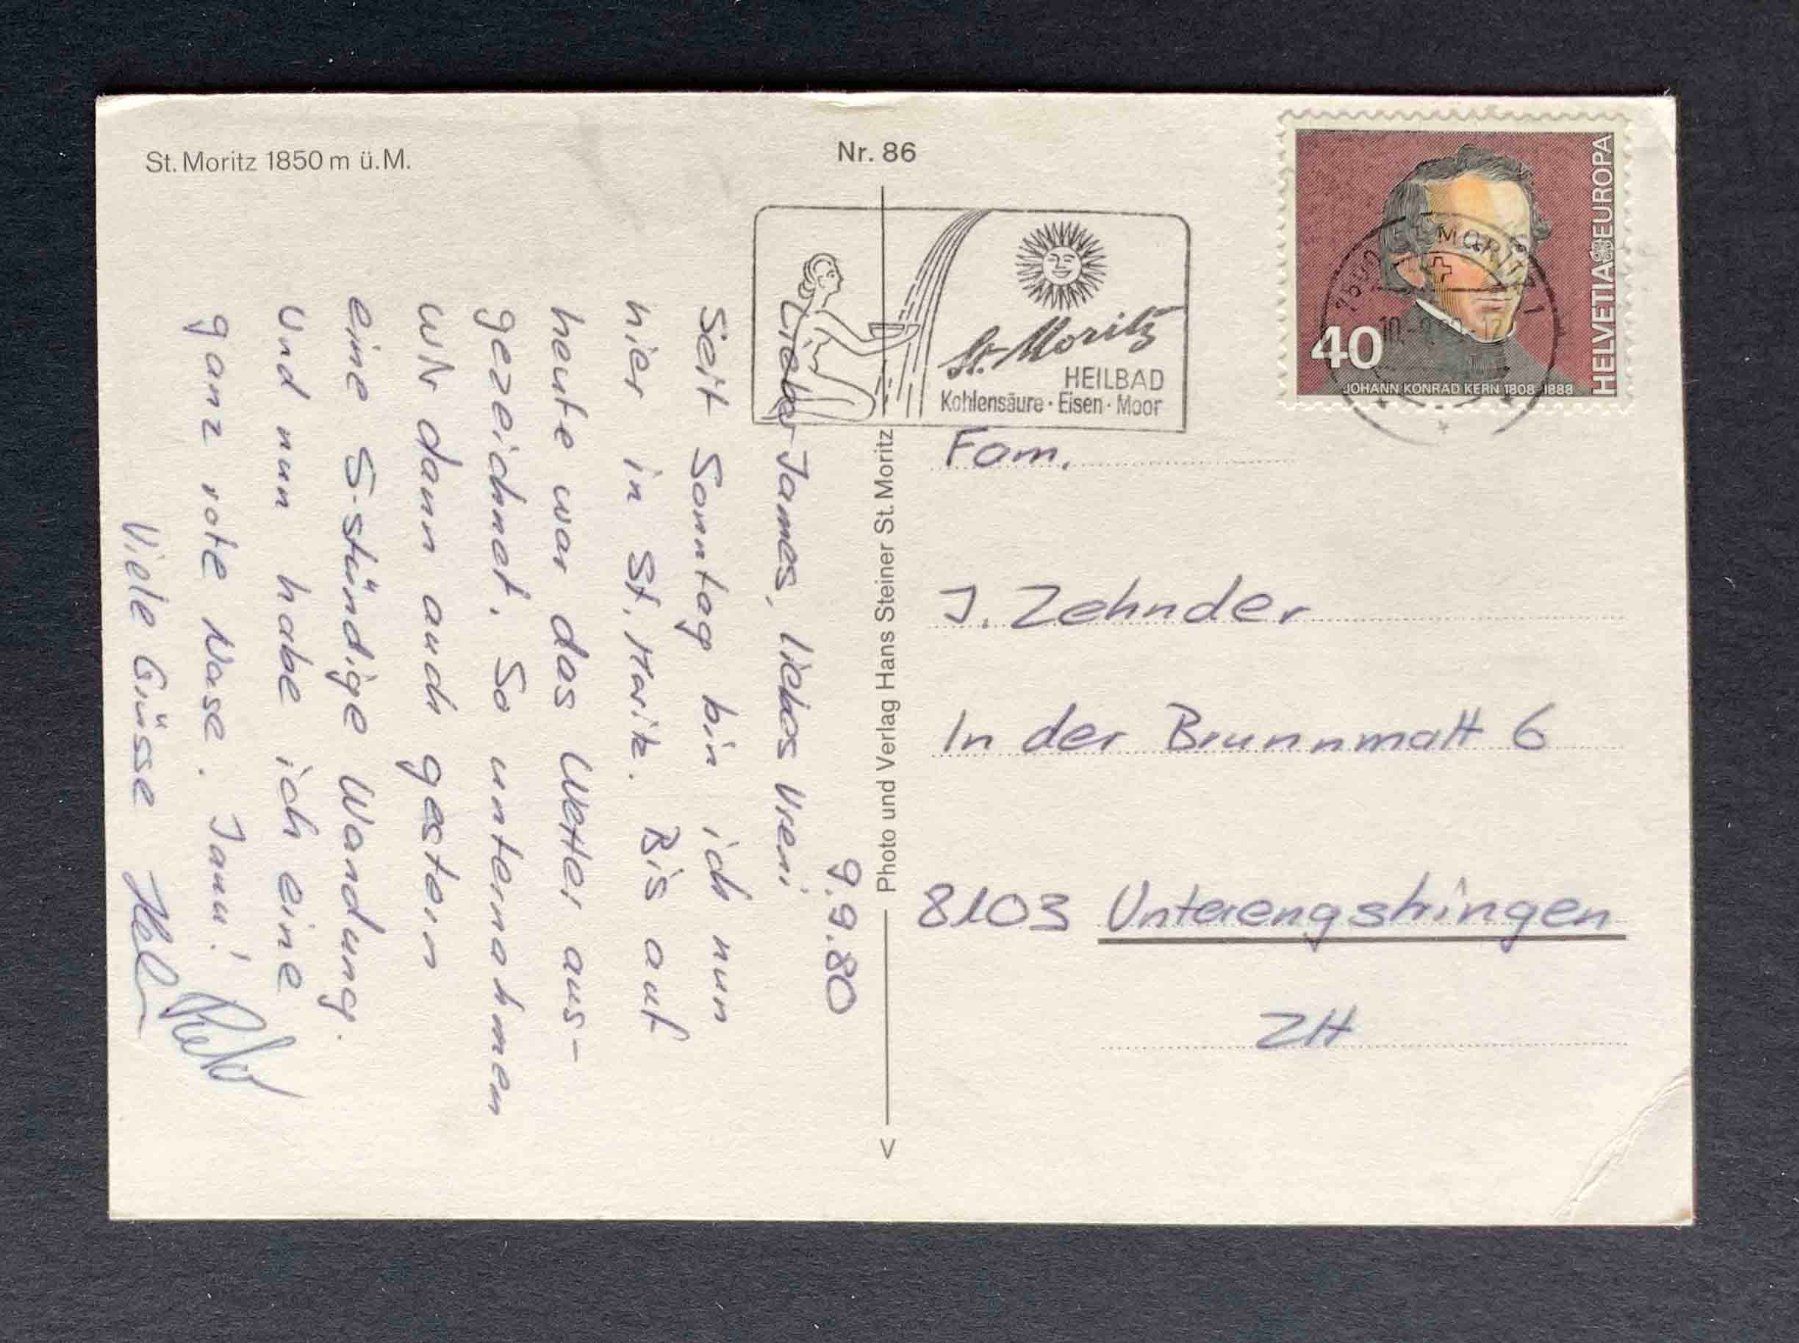 St. Moritz 1850 m ü.M.
Nr. 86
HELVETIA EUROPA
40
JOHANN KONRAD KERN 1808 1888
ST. MORITZ 1
St. Moritz
HEILBAD
Kohlensäure · Eisen · Moor
Photo und Verlag Hans Steiner St. Moritz
V
9.9.80
Lieber James, liebes Vreni
seit Sonntag bin ich nun
hier in St. Moritz. Bis auf
heute war das Wetter aus-
gezeichnet. So unternahmen
wir dann auch gestern
eine 5-stündige Wandung.
Und nun habe ich eine
ganz rote Nase. Januu!
Viele Grüsse
Fam.
J. Zehnder
In der Brunnmatt 6
8103 Unterengstringen
ZH